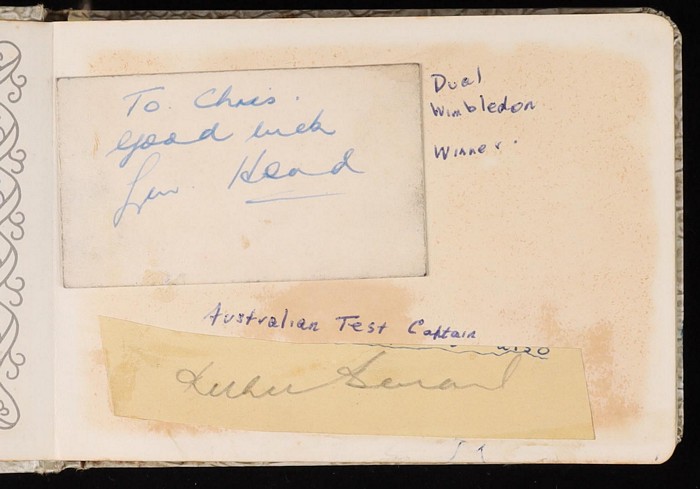 To Chris.
Good luck
Lew. Hoad
Dual
Wimbledon
Winner.
Australian Test Captain
Richie Benaud